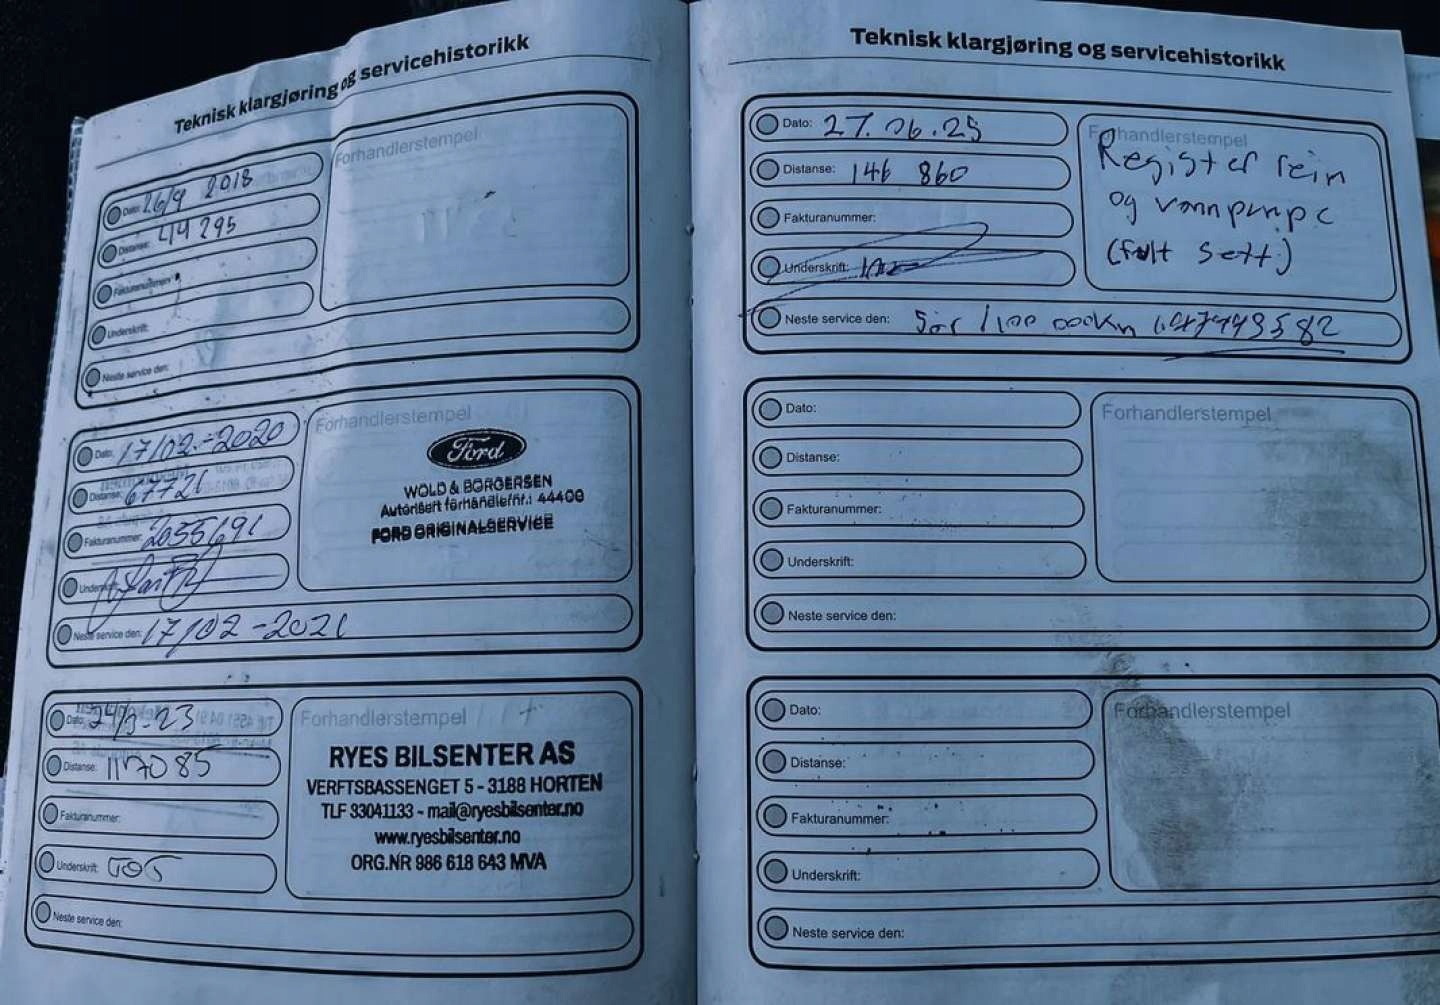 Teknisk klargjøring og servicehistorikk
Dato: 26/9 2018
Distanse: 44 295
Fakturanummer:
Underskrift:
Neste service den:
Forhandlerstempel
Dato: 17/02.-2020
Distanse: 67721
Fakturanummer: 2055691
Underskrift:
Neste service den: 17/02-2021
Forhandlerstempel
Ford
WOLD & BORGERSEN
Autorisert forhandlefnr.: 44400
FORD ORIGINALSERVICE
Dato: 24/3-23
Distanse: 117085
Fakturanummer:
Underskrift:
Neste service den:
Forhandlerstempel
RYES BILSENTER AS
VERFTSBASSENGET 5 - 3188 HORTEN
TLF 33041133 - mail@ryesbilsenter.no
www.ryesbilsenter.no
ORG.NR 986 618 643 MVA
Teknisk klargjøring og servicehistorikk
Dato: 27.06.25
Distanse: 146 860
Fakturanummer:
Underskrift:
Neste service den: 5år /100 000km
Forhandlerstempel
Register reim
og vannpumpe
(fult sett)
Dato:
Distanse:
Fakturanummer:
Underskrift:
Neste service den:
Forhandlerstempel
Dato:
Distanse:
Fakturanummer:
Underskrift:
Neste service den:
Forhandlerstempel